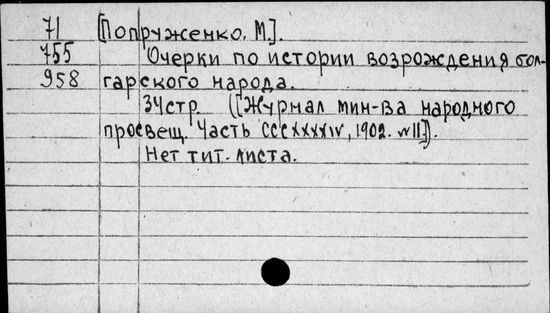 71 [Попруженко, М.].
755 Очерки по истории возрождения бол-
958 гарского народа.
34стр. ([Журнал мин-ва народного
просвещ. Часть CCCXXXXIV, 1902. №11]).
Нет тит. листа.